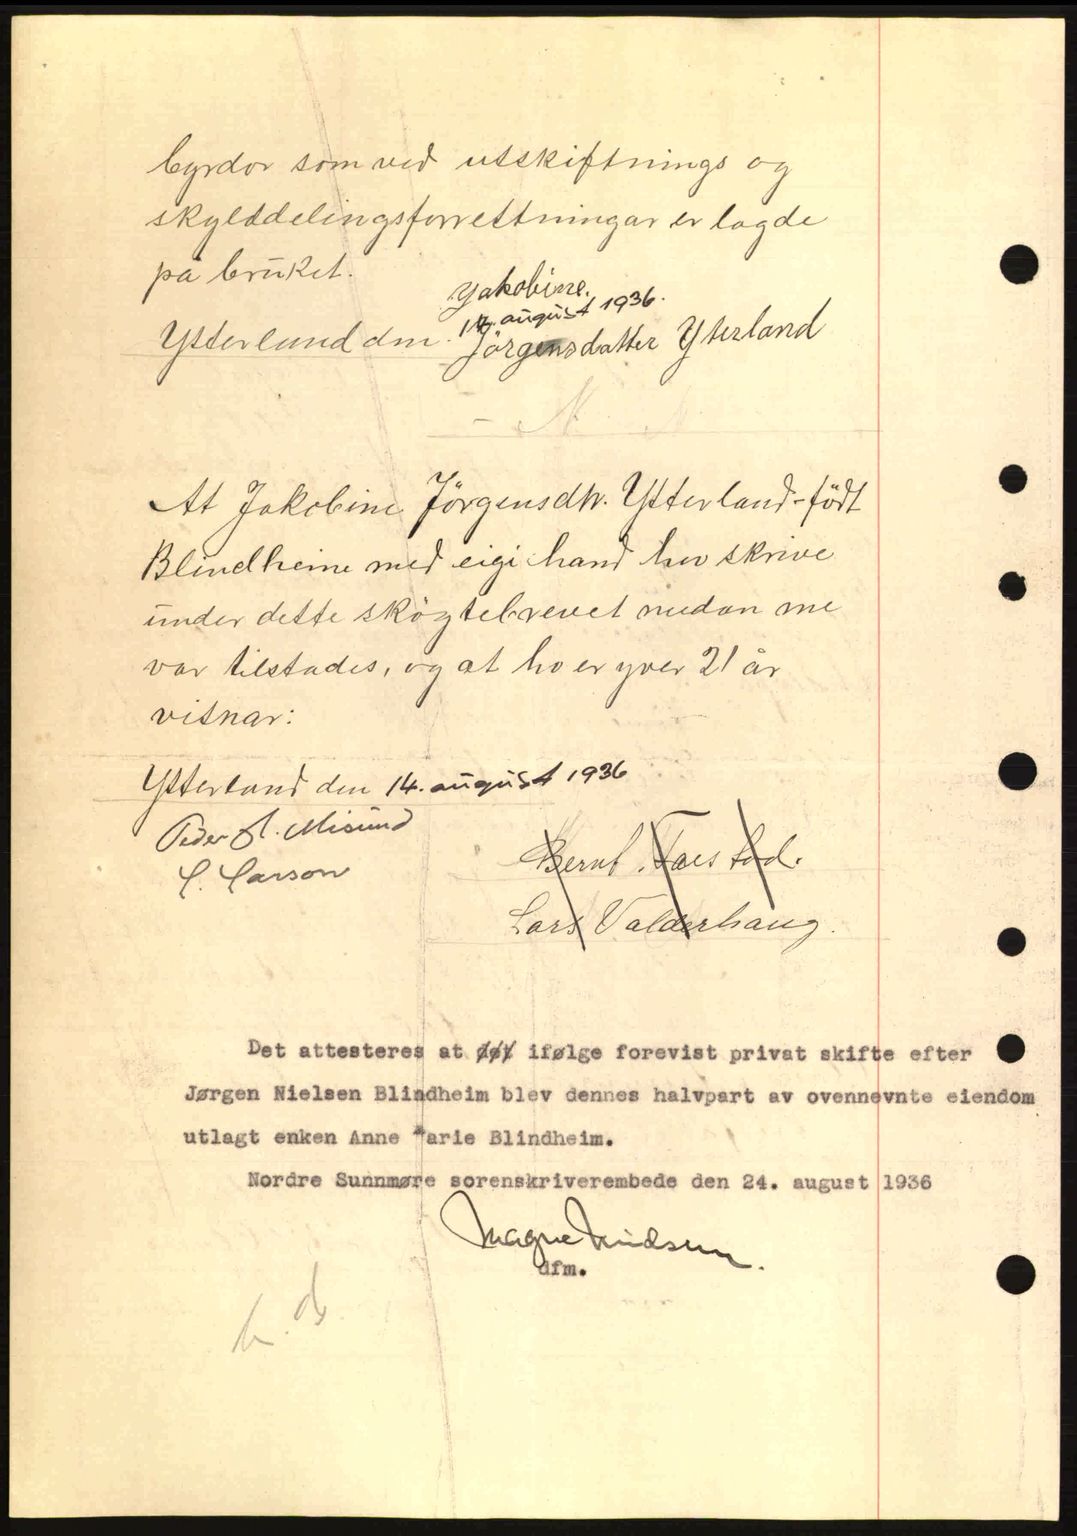 byrdor som ved utskiftnings og
skylddelingsforrettningar er lagde
på bruket.
Yakobine.
Ytterland den 14. august 1936.
Jörgensdatter Yterland
At Jakobine Jörgensdtr. Ytterland-födt
Blindheim med eigi hand hev skrive
under dette skögtebrevet medan me
var tilstades, og at ho er yver 21 år
vitnar:
Ytterland den 14. august 1936
Peder A. Misund
Bernt Farstad.
C. Carson
Lars Valderhaug.
Det attesteres at det ifølge forevist privat skifte efter
Jørgen Nielsen Blindheim blev dennes halvpart av ovennevnte eiendom
utlagt enken Anne Marie Blindheim.
Nordre Sunnmøre sorenskriverembede den 24. august 1936
Magne Knudsen.
dfm.